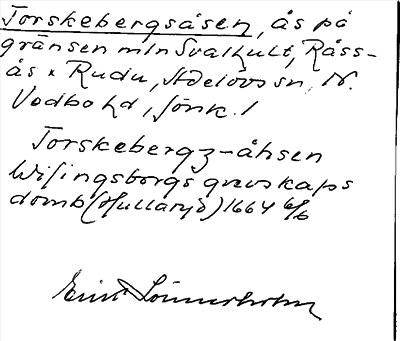 Torskebergsåsen, ås på
gränsen mln Svalhult, Råss-
ås & Rudu, Adelövs sn, N.
Vedbo hd, Jönk. l
Torskebergz-åhsen
Wisingsborgs grevskaps
domb (Hullaryd) 1664 6/6